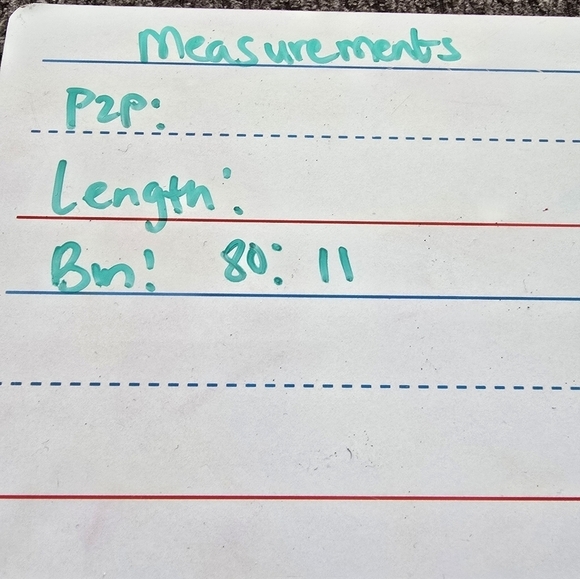 Measurements
P2P:
Length:
Bin: 80: 11